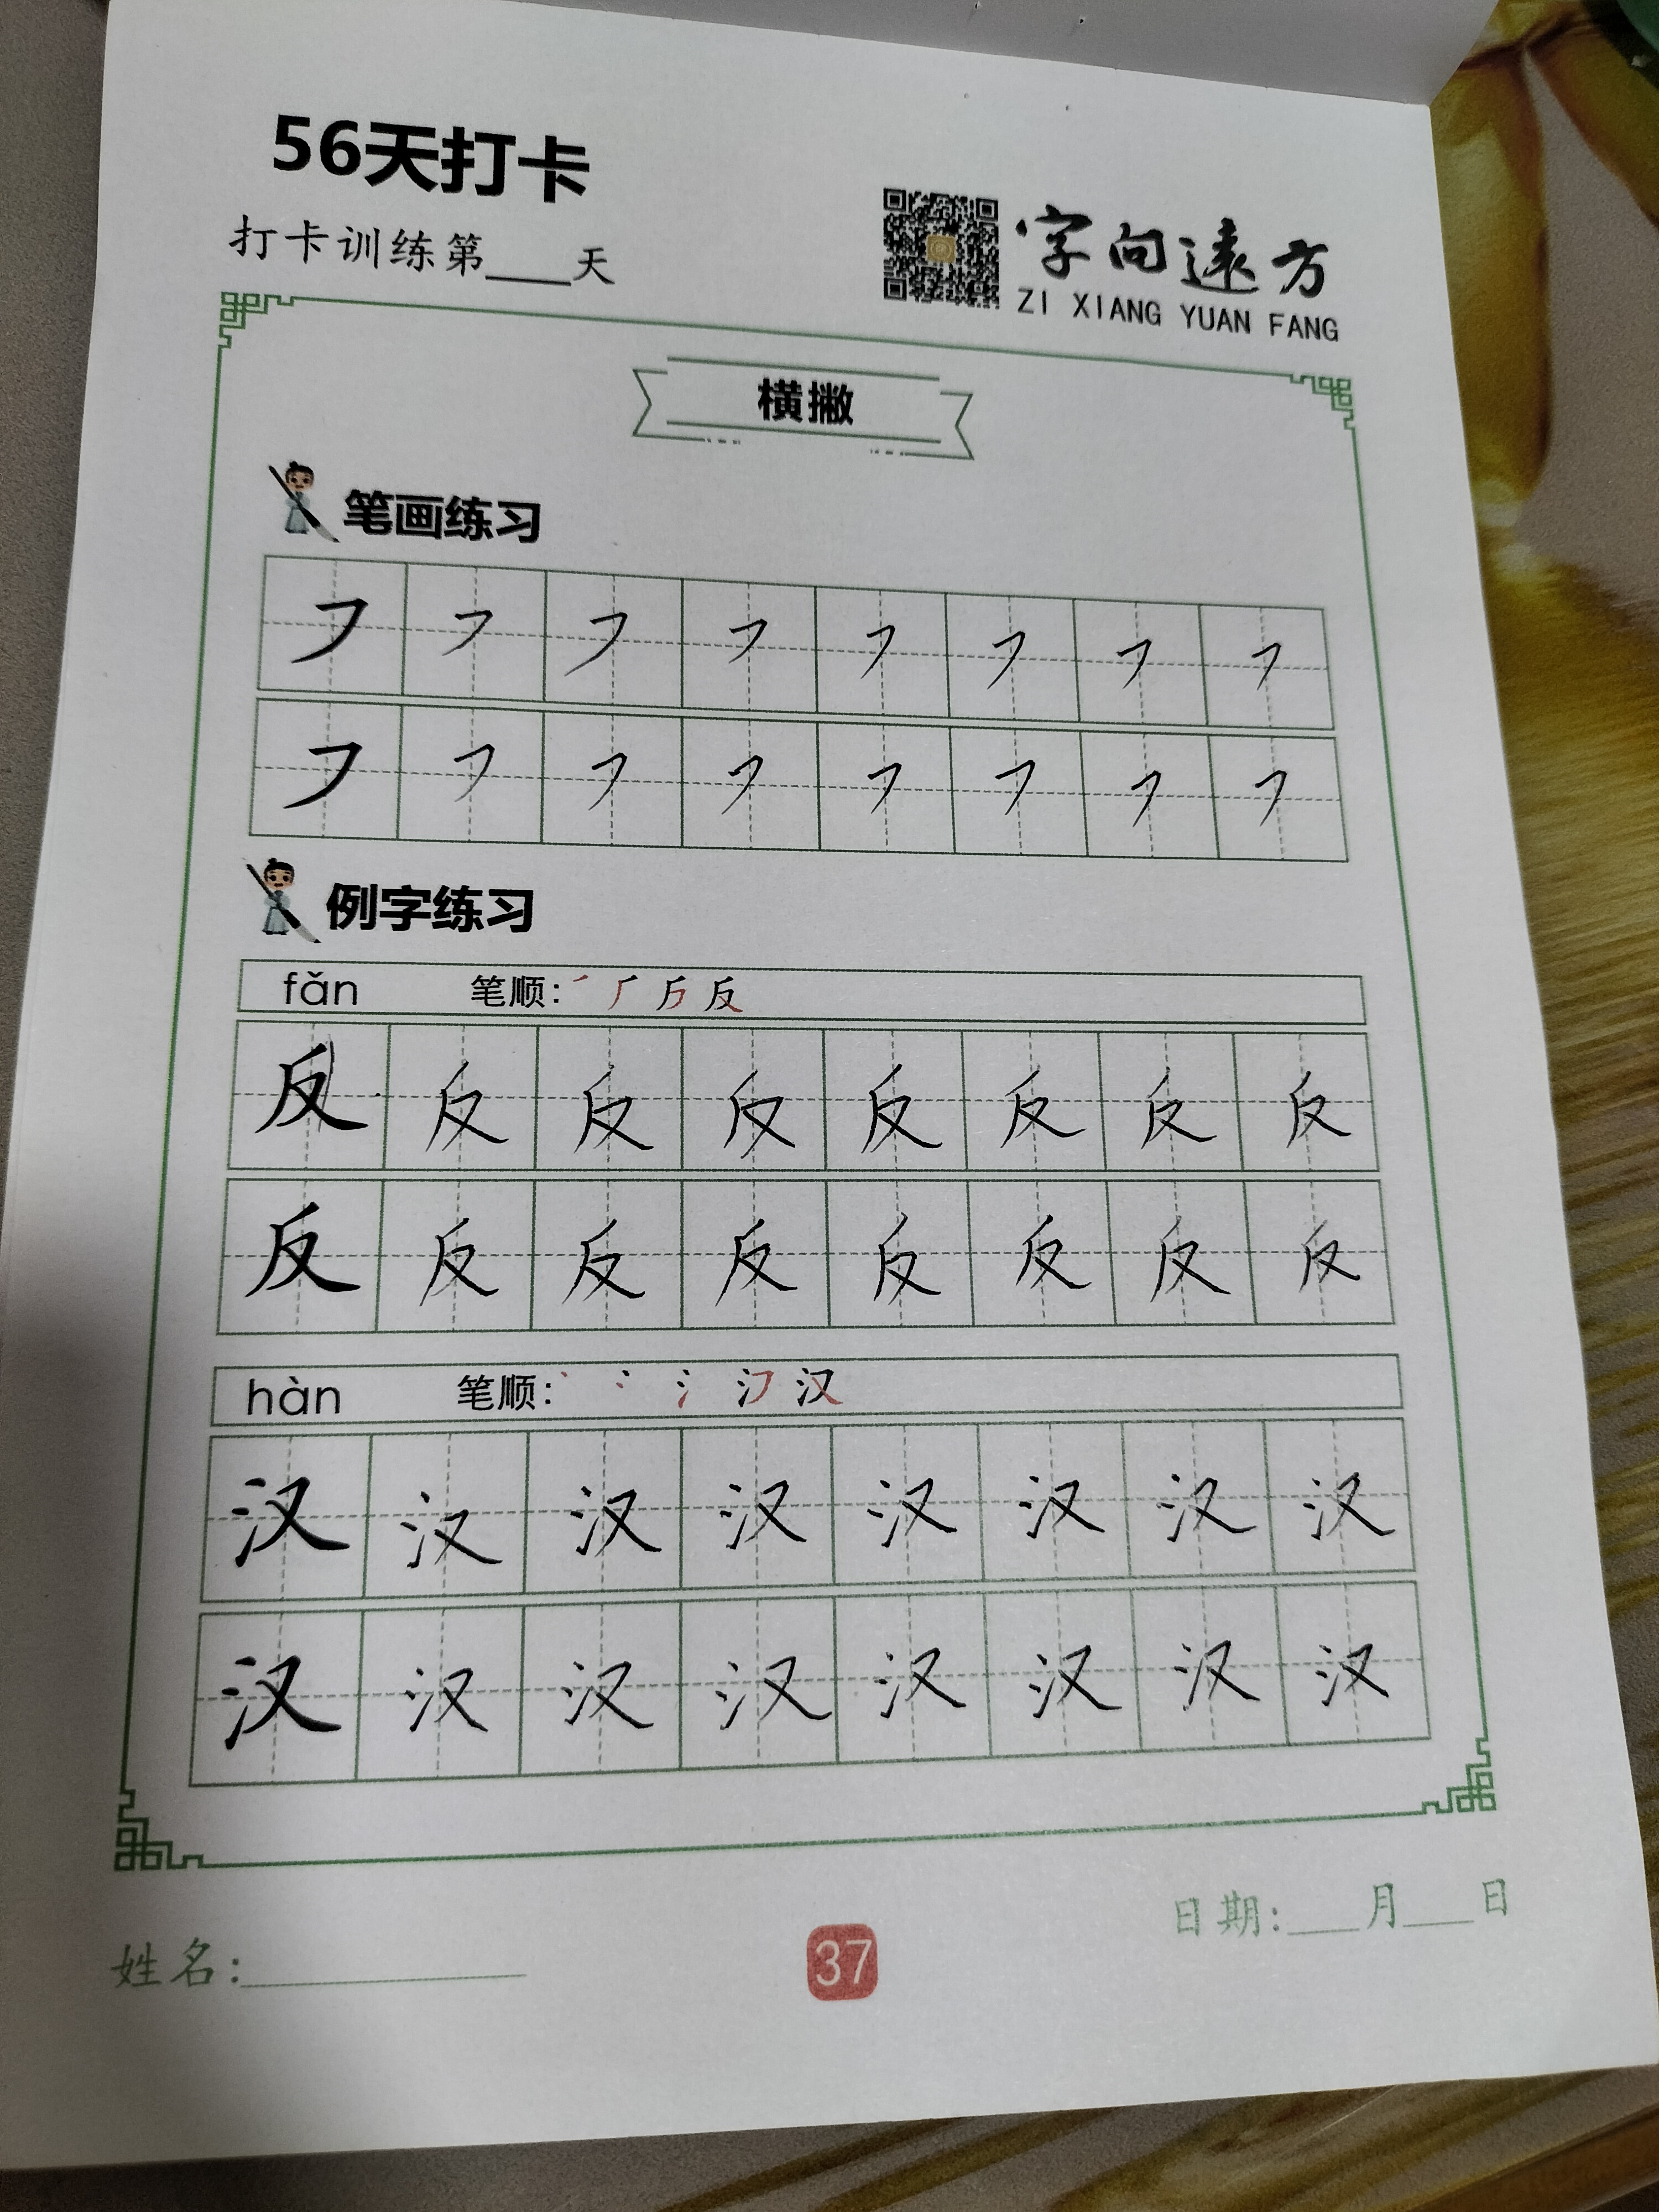 56天打卡
打卡训练第____天
字向遠方
ZI XIANG YUAN FANG
横撇
笔画练习
㇇ ㇇ ㇇ ㇇ ㇇ ㇇ ㇇ ㇇
㇇ ㇇ ㇇ ㇇ ㇇ ㇇ ㇇ ㇇
例字练习
fǎn 笔顺: ㇒ 厂 𠂆 反
反 反 反 反 反 反 反 反
反 反 反 反 反 反 反 反
hàn 笔顺: 丶 冫 氵 汉 汉
汉 汉 汉 汉 汉 汉 汉 汉
汉 汉 汉 汉 汉 汉 汉 汉
姓名:____________
37
日期:___月___日